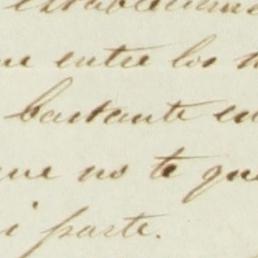 entre los
bastante en
que no te que
i parte.